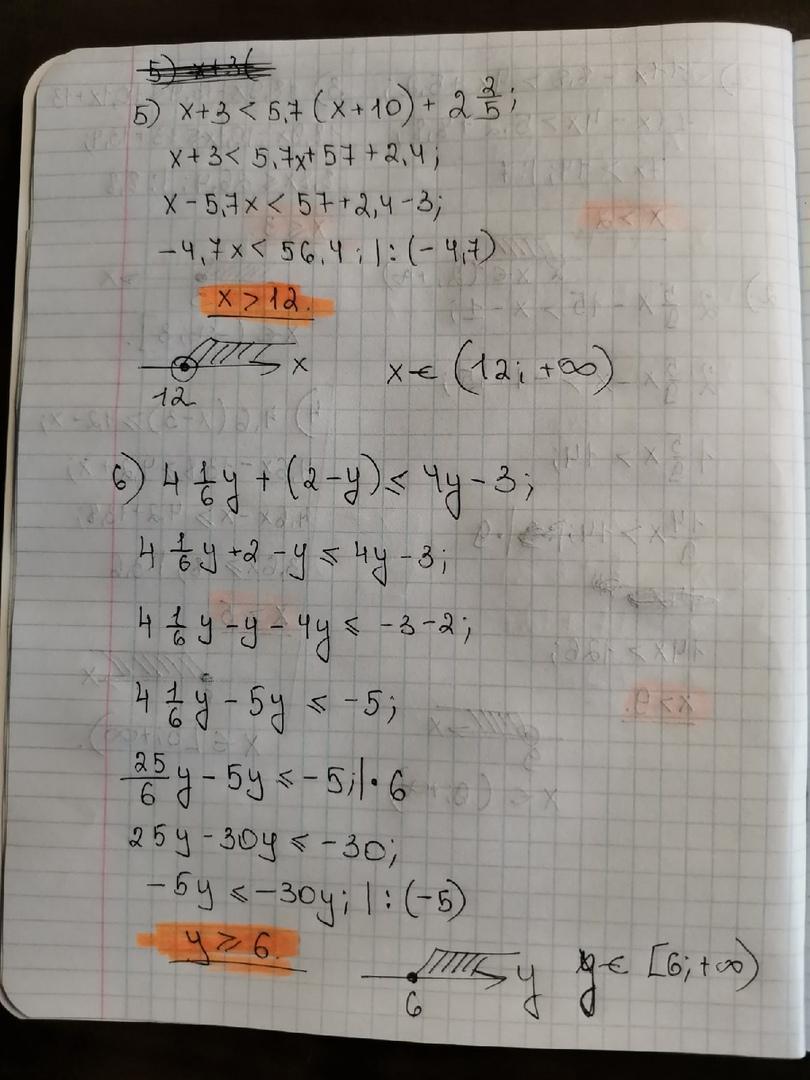 5) x+3(
5) x+3 < 5,7 (x+10) + 2 2/5;
x+3 < 5,7x+57+2,4;
x-5,7x < 57+2,4-3;
-4,7x < 56,4; |:(-4,7)
x > 12.
x
12
x ∈ (12; +∞)
6) 4 1/6 y + (2-y) ≤ 4y-3;
4 1/6 y +2-y ≤ 4y-3;
4 1/6 y - y - 4y ≤ -3-2;
4 1/6 y - 5y ≤ -5;
25/6 y - 5y ≤ -5; | · 6
25y - 30y ≤ -30;
-5y ≤ -30y; | : (-5)
y ≥ 6.
y
6
y ∈ [6; +∞)